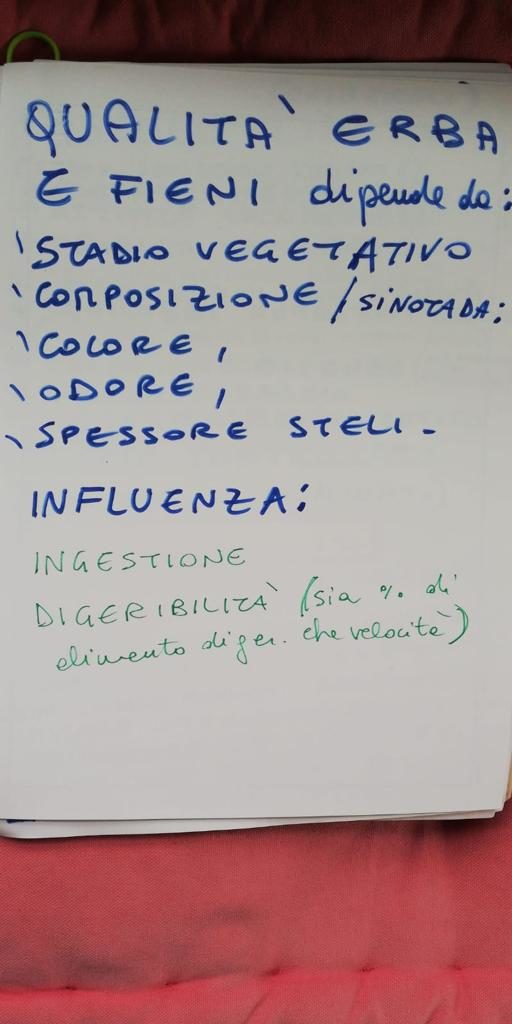 QUALITA' ERBA
E FIENI dipende da:
\ STADIO VEGETATIVO
\ COMPOSIZIONE / SI NOTA DA:
\ COLORE,
\ ODORE,
\ SPESSORE STELI.
INFLUENZA:
INGESTIONE
DIGERIBILITÀ (sia % di
alimento diger. che velocità)